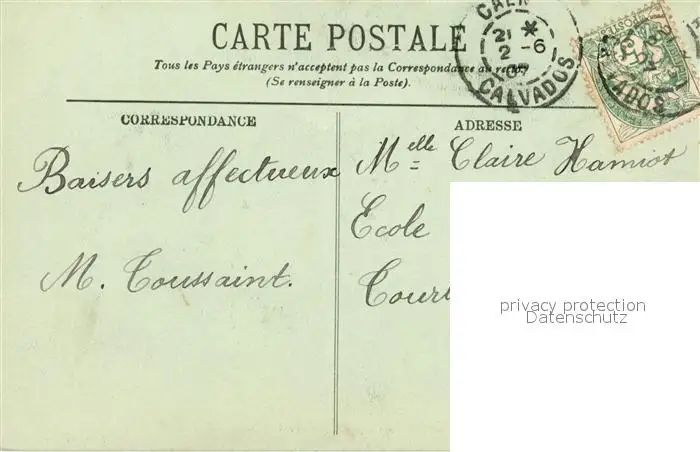 CARTE POSTALE
Tous les Pays étrangers n'acceptent pas la Correspondance au recto.
(Se renseigner à la Poste).
CAEN
21 *
2 -6
07
CALVADOS
CORRESPONDANCE
ADRESSE
Baisers affectueux
M. Toussaint.
Melle Claire Hamiot
Ecole
privacy protection
Datenschutz